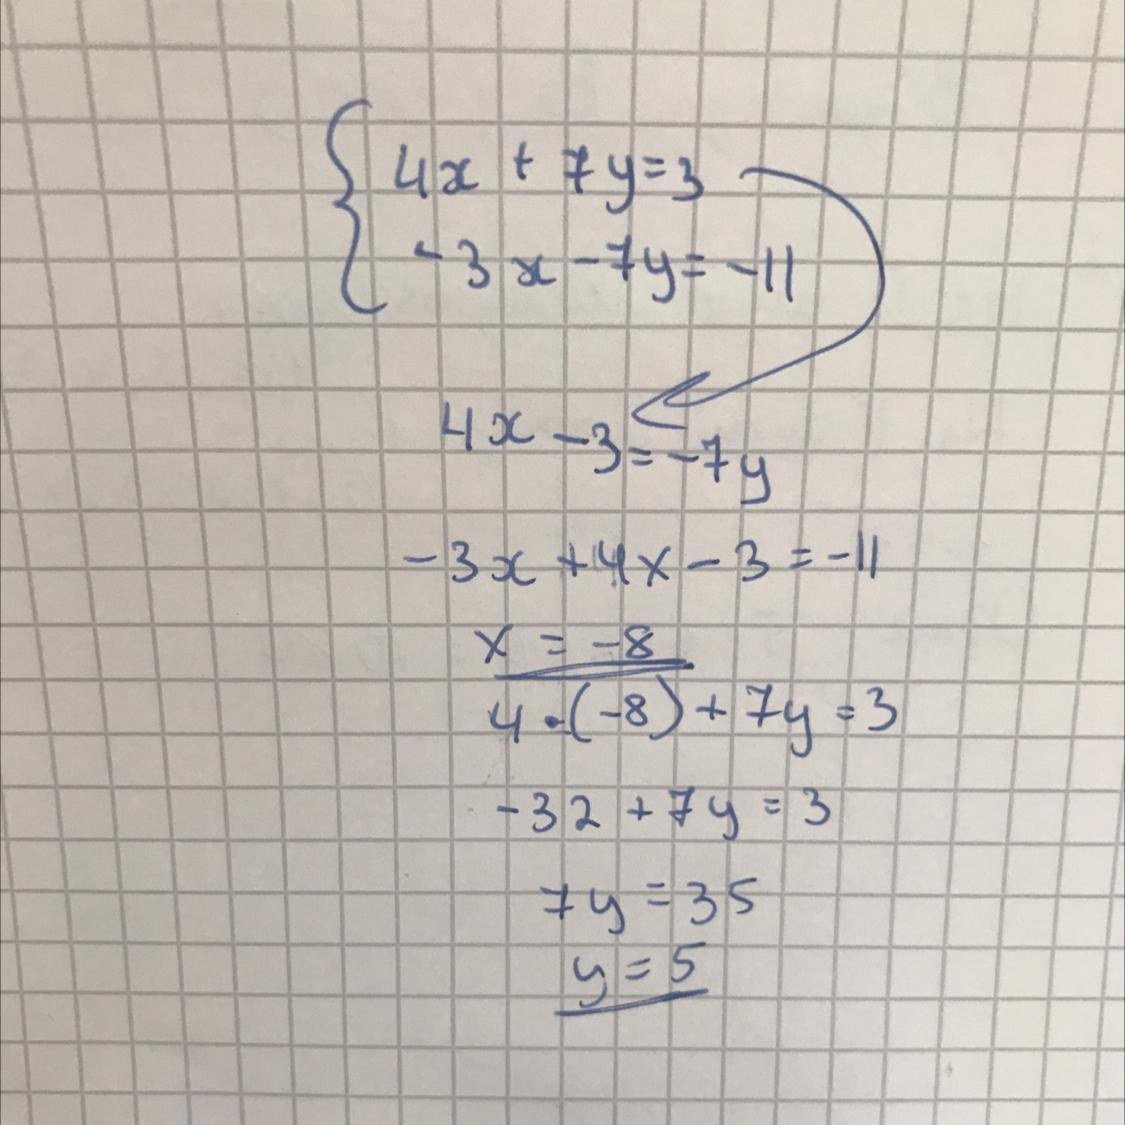 4x + 7y = 3
-3x - 7y = -11
4x - 3 = -7y
-3x + 4x - 3 = -11
x = -8
4 · (-8) + 7y = 3
-32 + 7y = 3
7y = 35
y = 5